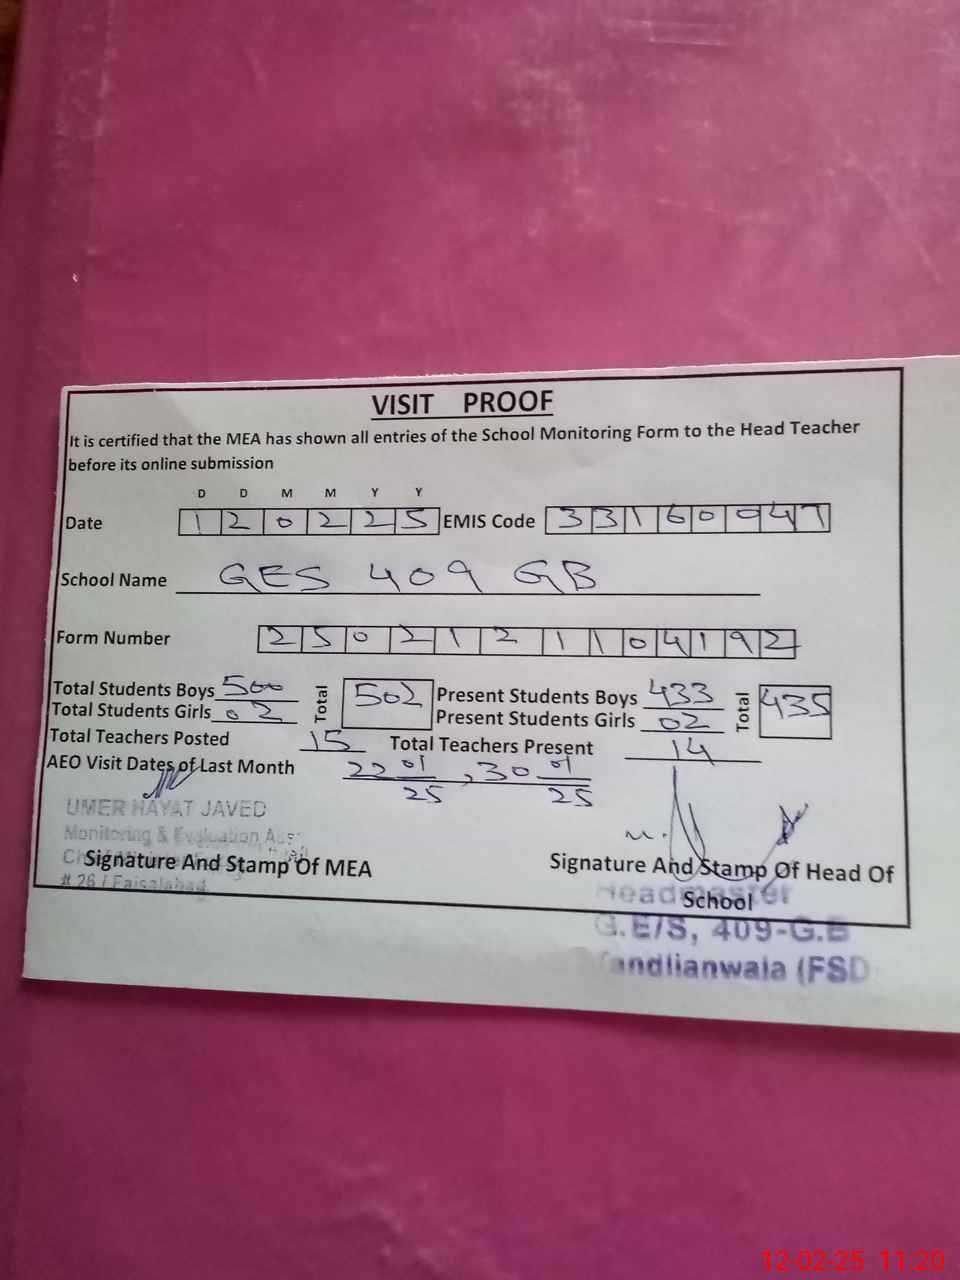 VISIT PROOF
It is certified that the MEA has shown all entries of the School Monitoring Form to the Head Teacher
before its online submission
D D M M Y Y
Date 1 2 0 2 2 5 EMIS Code 3 3 1 6 0 0 4 7
School Name GES 409 GB
Form Number 2 5 0 2 1 2 1 1 0 4 1 9 2
Total Students Boys 500 Total 502 Present Students Boys 433 Total 435
Total Students Girls 02 Present Students Girls 02
Total Teachers Posted 15 Total Teachers Present 14
AEO Visit Dates of Last Month 22 01 25, 30 01 25
UMER HAYAT JAVED
Monitoring & Evaluation
Signature And Stamp Of MEA
# 26 / Faisalabad
Signature And Stamp Of Head Of
School
Headmaster
G.E/S, 409-G.B
andlianwala (FSD
12-02-25 11:20